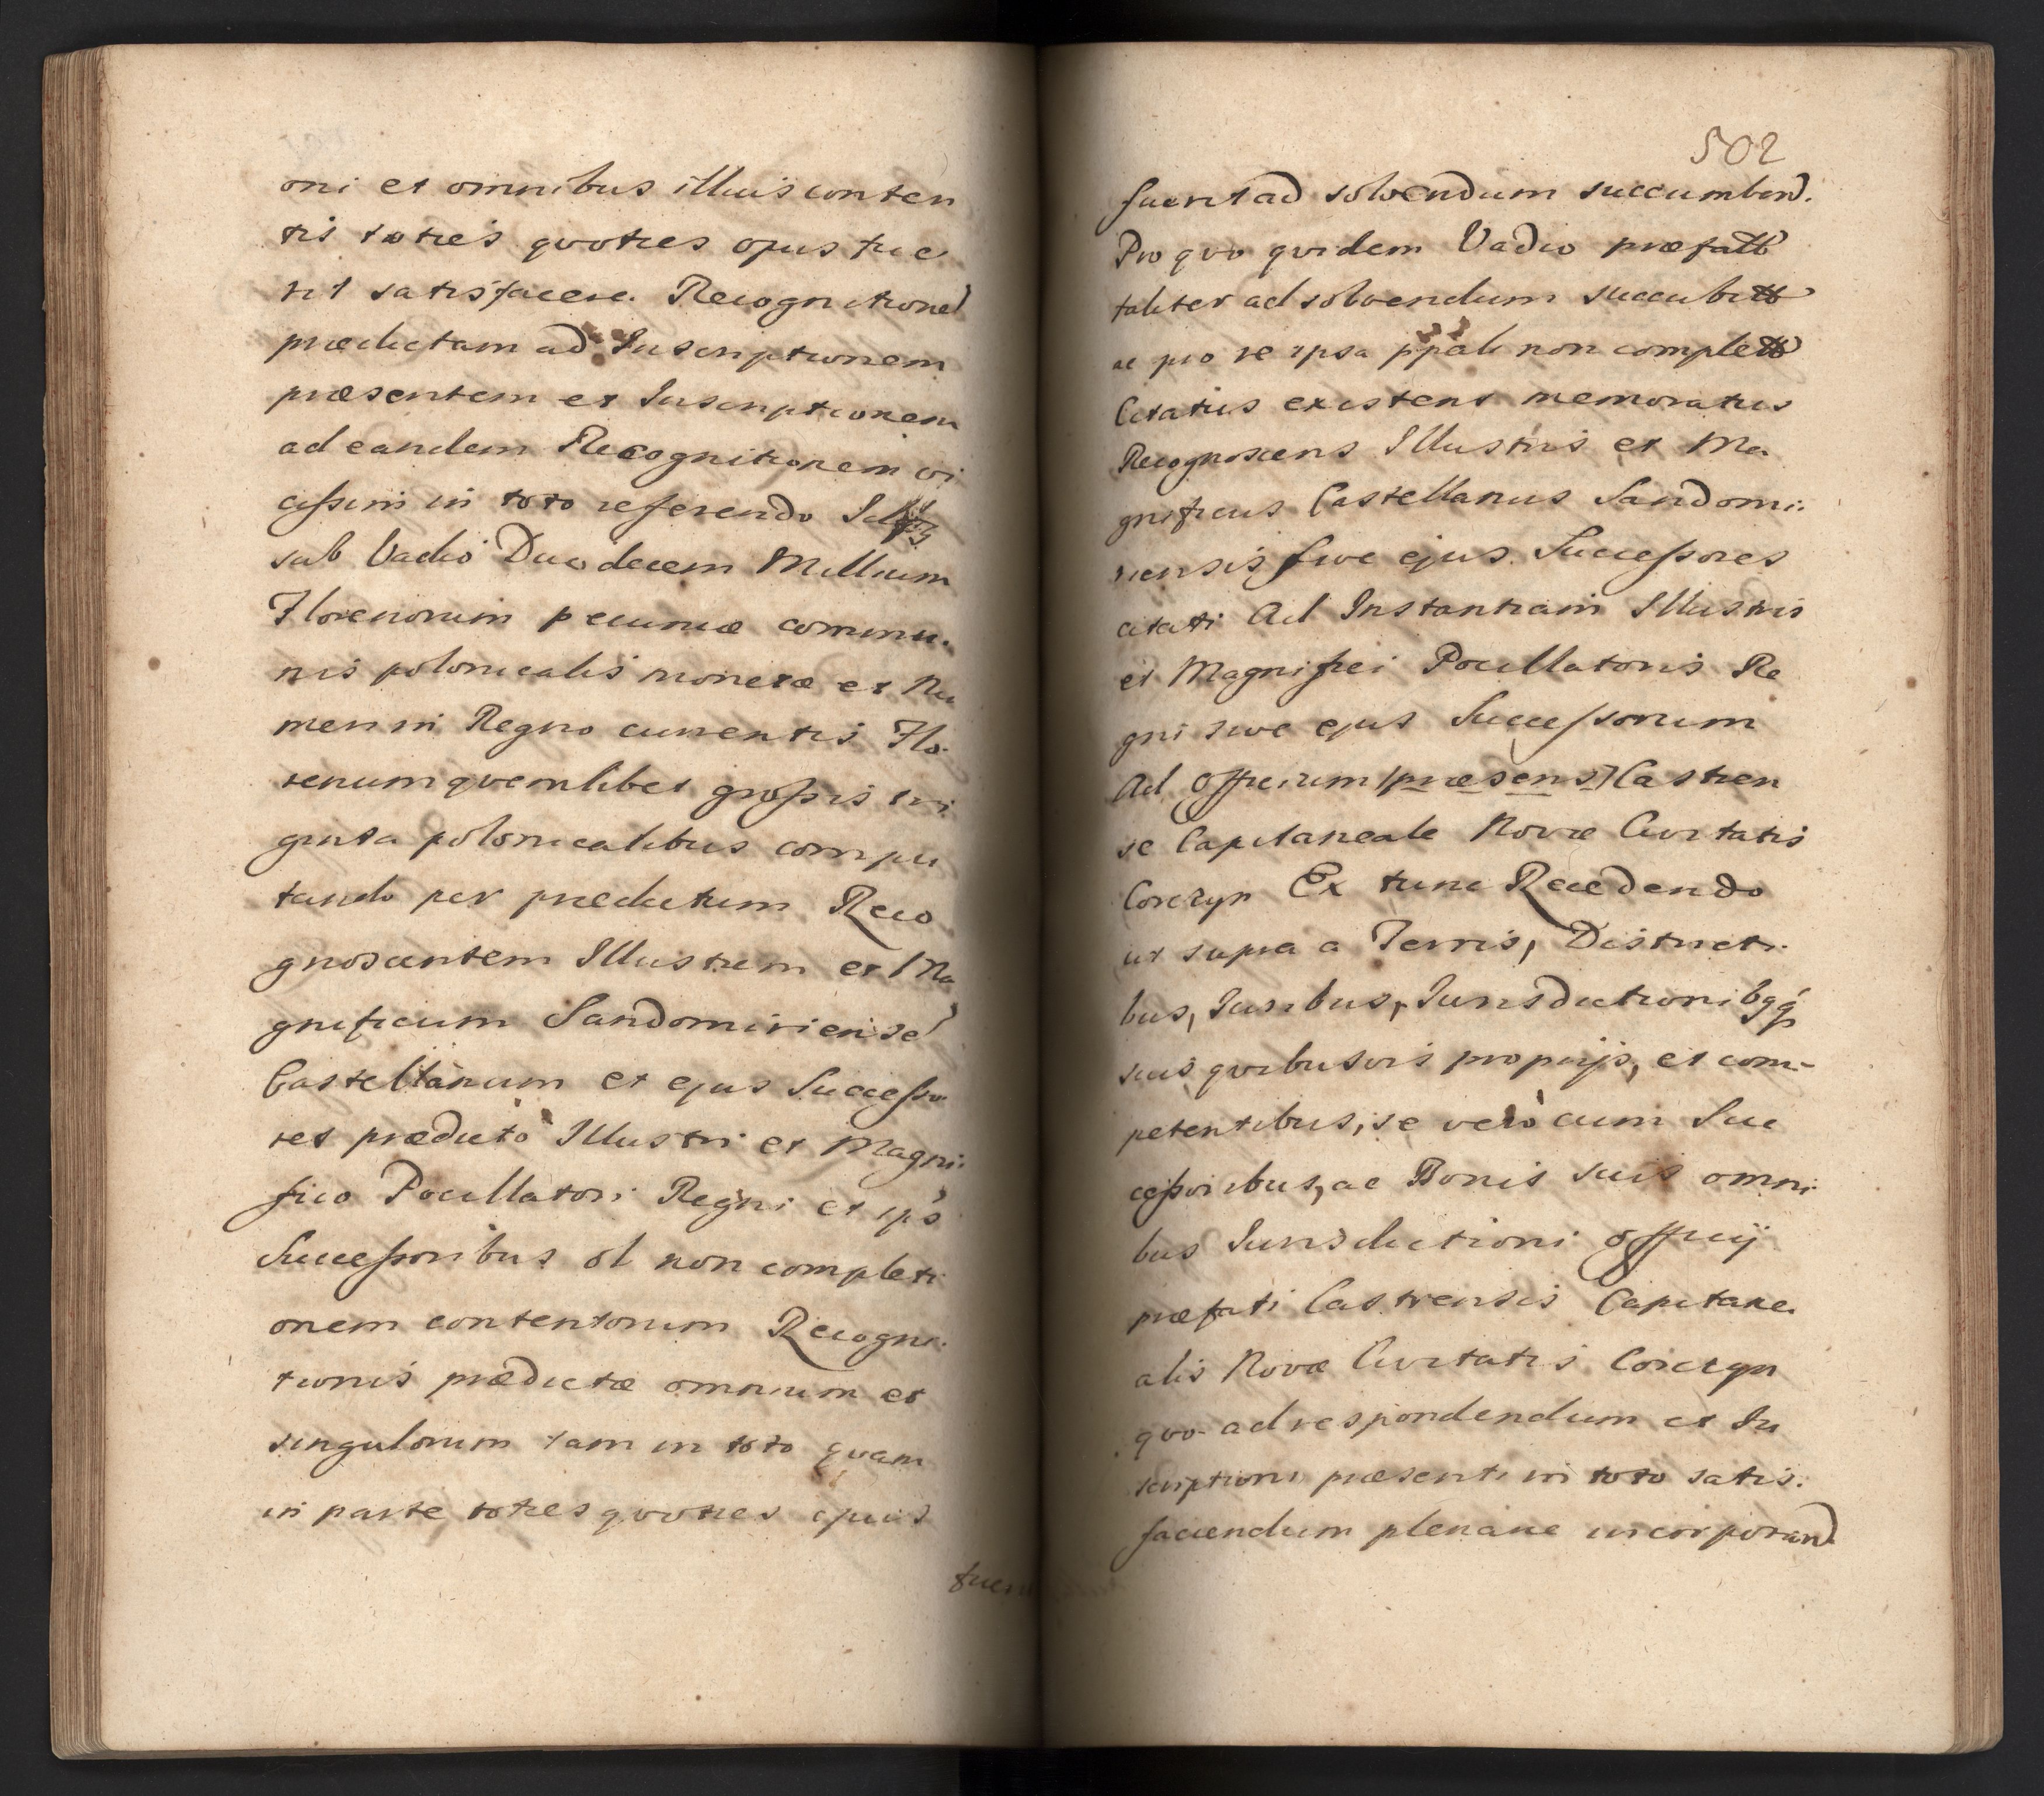 oni et omnibus illius conten
tis toties quoties opus fue
rit satisfacere. Recognitione
praedictam ad Inscriptionem
praesentem et Inscriptionem
ad eandem Recognitionem vi
cissim in toto referendo
sub Vadio Duodecem Millium
Florenorum pecuniae commu.
nis polonicalis monetae et Nu
meri in Regno currentis Flo.
renum quemlibet grossis tri
ginta polonicalibus compu
tando per praedictum Reco
gnoscentem Illustrem et Ma
gnificum Sandomiriense
Castellanum et ejus Successo
res praedicto Illustri et Magni.
fico Pocillatori Regni et ips
Successoribus ob non completi
onem contentorum Recogni.
tionis praedictae omnium et
singulorum tam in toto quam
in parte toties quoties opus
fueri
502
fuerit ad solvendum succumben.
Pro quo quidem Vadio praefatt
taliter ad solvendum succubitt
ac pro re ipsa ppali non complett
Citatus existens memoratus
Recognoscens Illustris et Ma
gnificus Castellanus Sandomi:
riensis sive ejus Successores
citati Ad Instantiam Illustris
et Magnifici Pocillatoris Re
gni sive ejus Successorum
Ad Officium praesens Castren
se Capitaneale Novae Civitatis
Corczyn Ex tunc Recedendo
ut supra a Terris, Districti.
bus, Juribus, Jurisdictionibqq
suis quibusvis propijs, et com-
petentibus, se vero cum Suc
cessoribus, ac Bonis suis omni.
bus Jurisdictioni officij
praefati Castrensis Capitane.
alis Novae Civitatis Corczyn
quo ad respondendum et In
scriptioni praesenti in toto satis.
faciendum plenarie incorporand